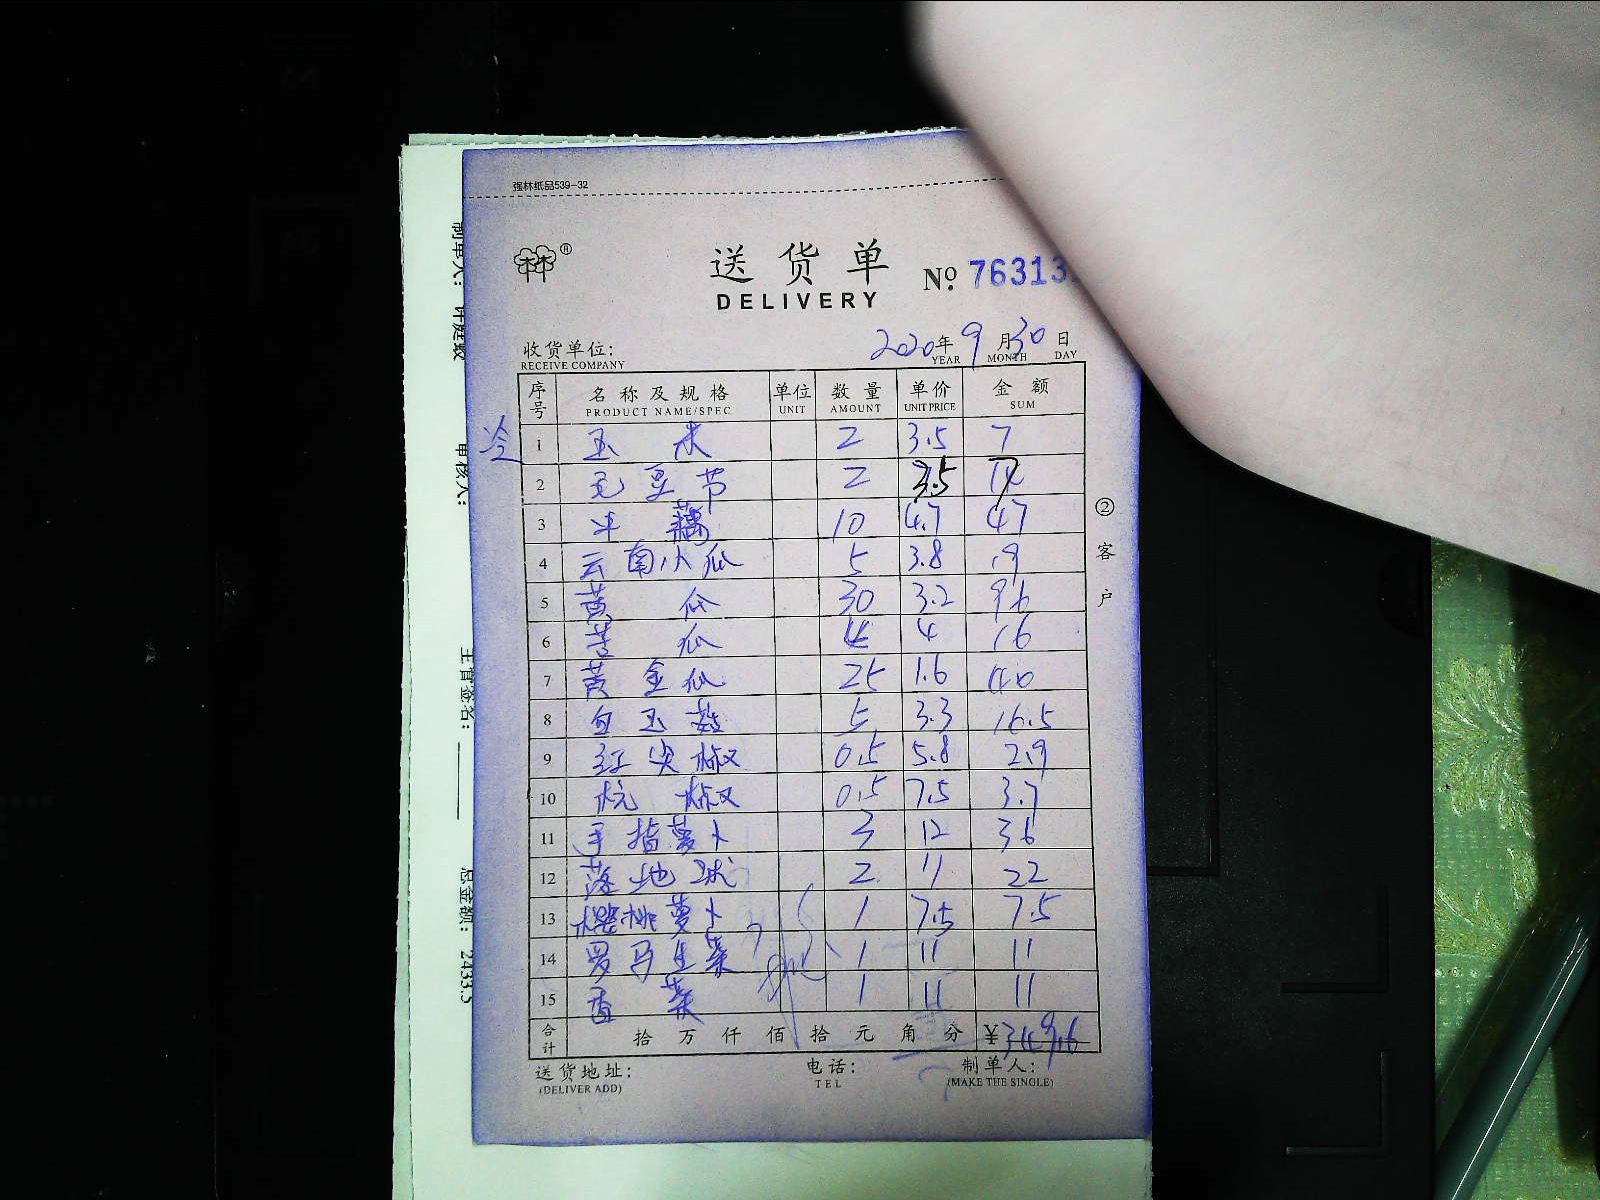 强林纸品539-32
送货单
DELIVERY
№ 76313
收货单位:
RECEIVE COMPANY
2020年 9 月 30 日
YEAR MONTH DAY
序号 名称及规格 单位 数量 单价 金额
PRODUCT NAME/SPEC UNIT AMOUNT UNIT PRICE SUM
冷
1 玉米 2 3.5 7
2 毛豆节 2 3.5 7
3 中藕 10 4.7 47
4 云南小瓜 5 3.8 19
5 黄瓜 30 3.2 96
6 苦瓜 4 4 16
7 黄金瓜 25 1.6 40
8 白玉菇 5 3.3 16.5
9 红尖椒 0.5 5.8 2.9
10 杭椒 0.5 7.5 3.7
11 手指萝卜 3 12 36
12 落地球 2 11 22
13 樱桃萝卜 1 7.5 7.5
14 罗马生菜 1 11 11
15 香菜 1 11 11
合计 拾万仟佰拾元角分 ¥349.6
送货地址:
(DELIVER ADD)
电话:
TEL
制单人:
(MAKE THE SINGLE)
②客户
制单人:
审核人:
主管签名:
总金额: 2433.5